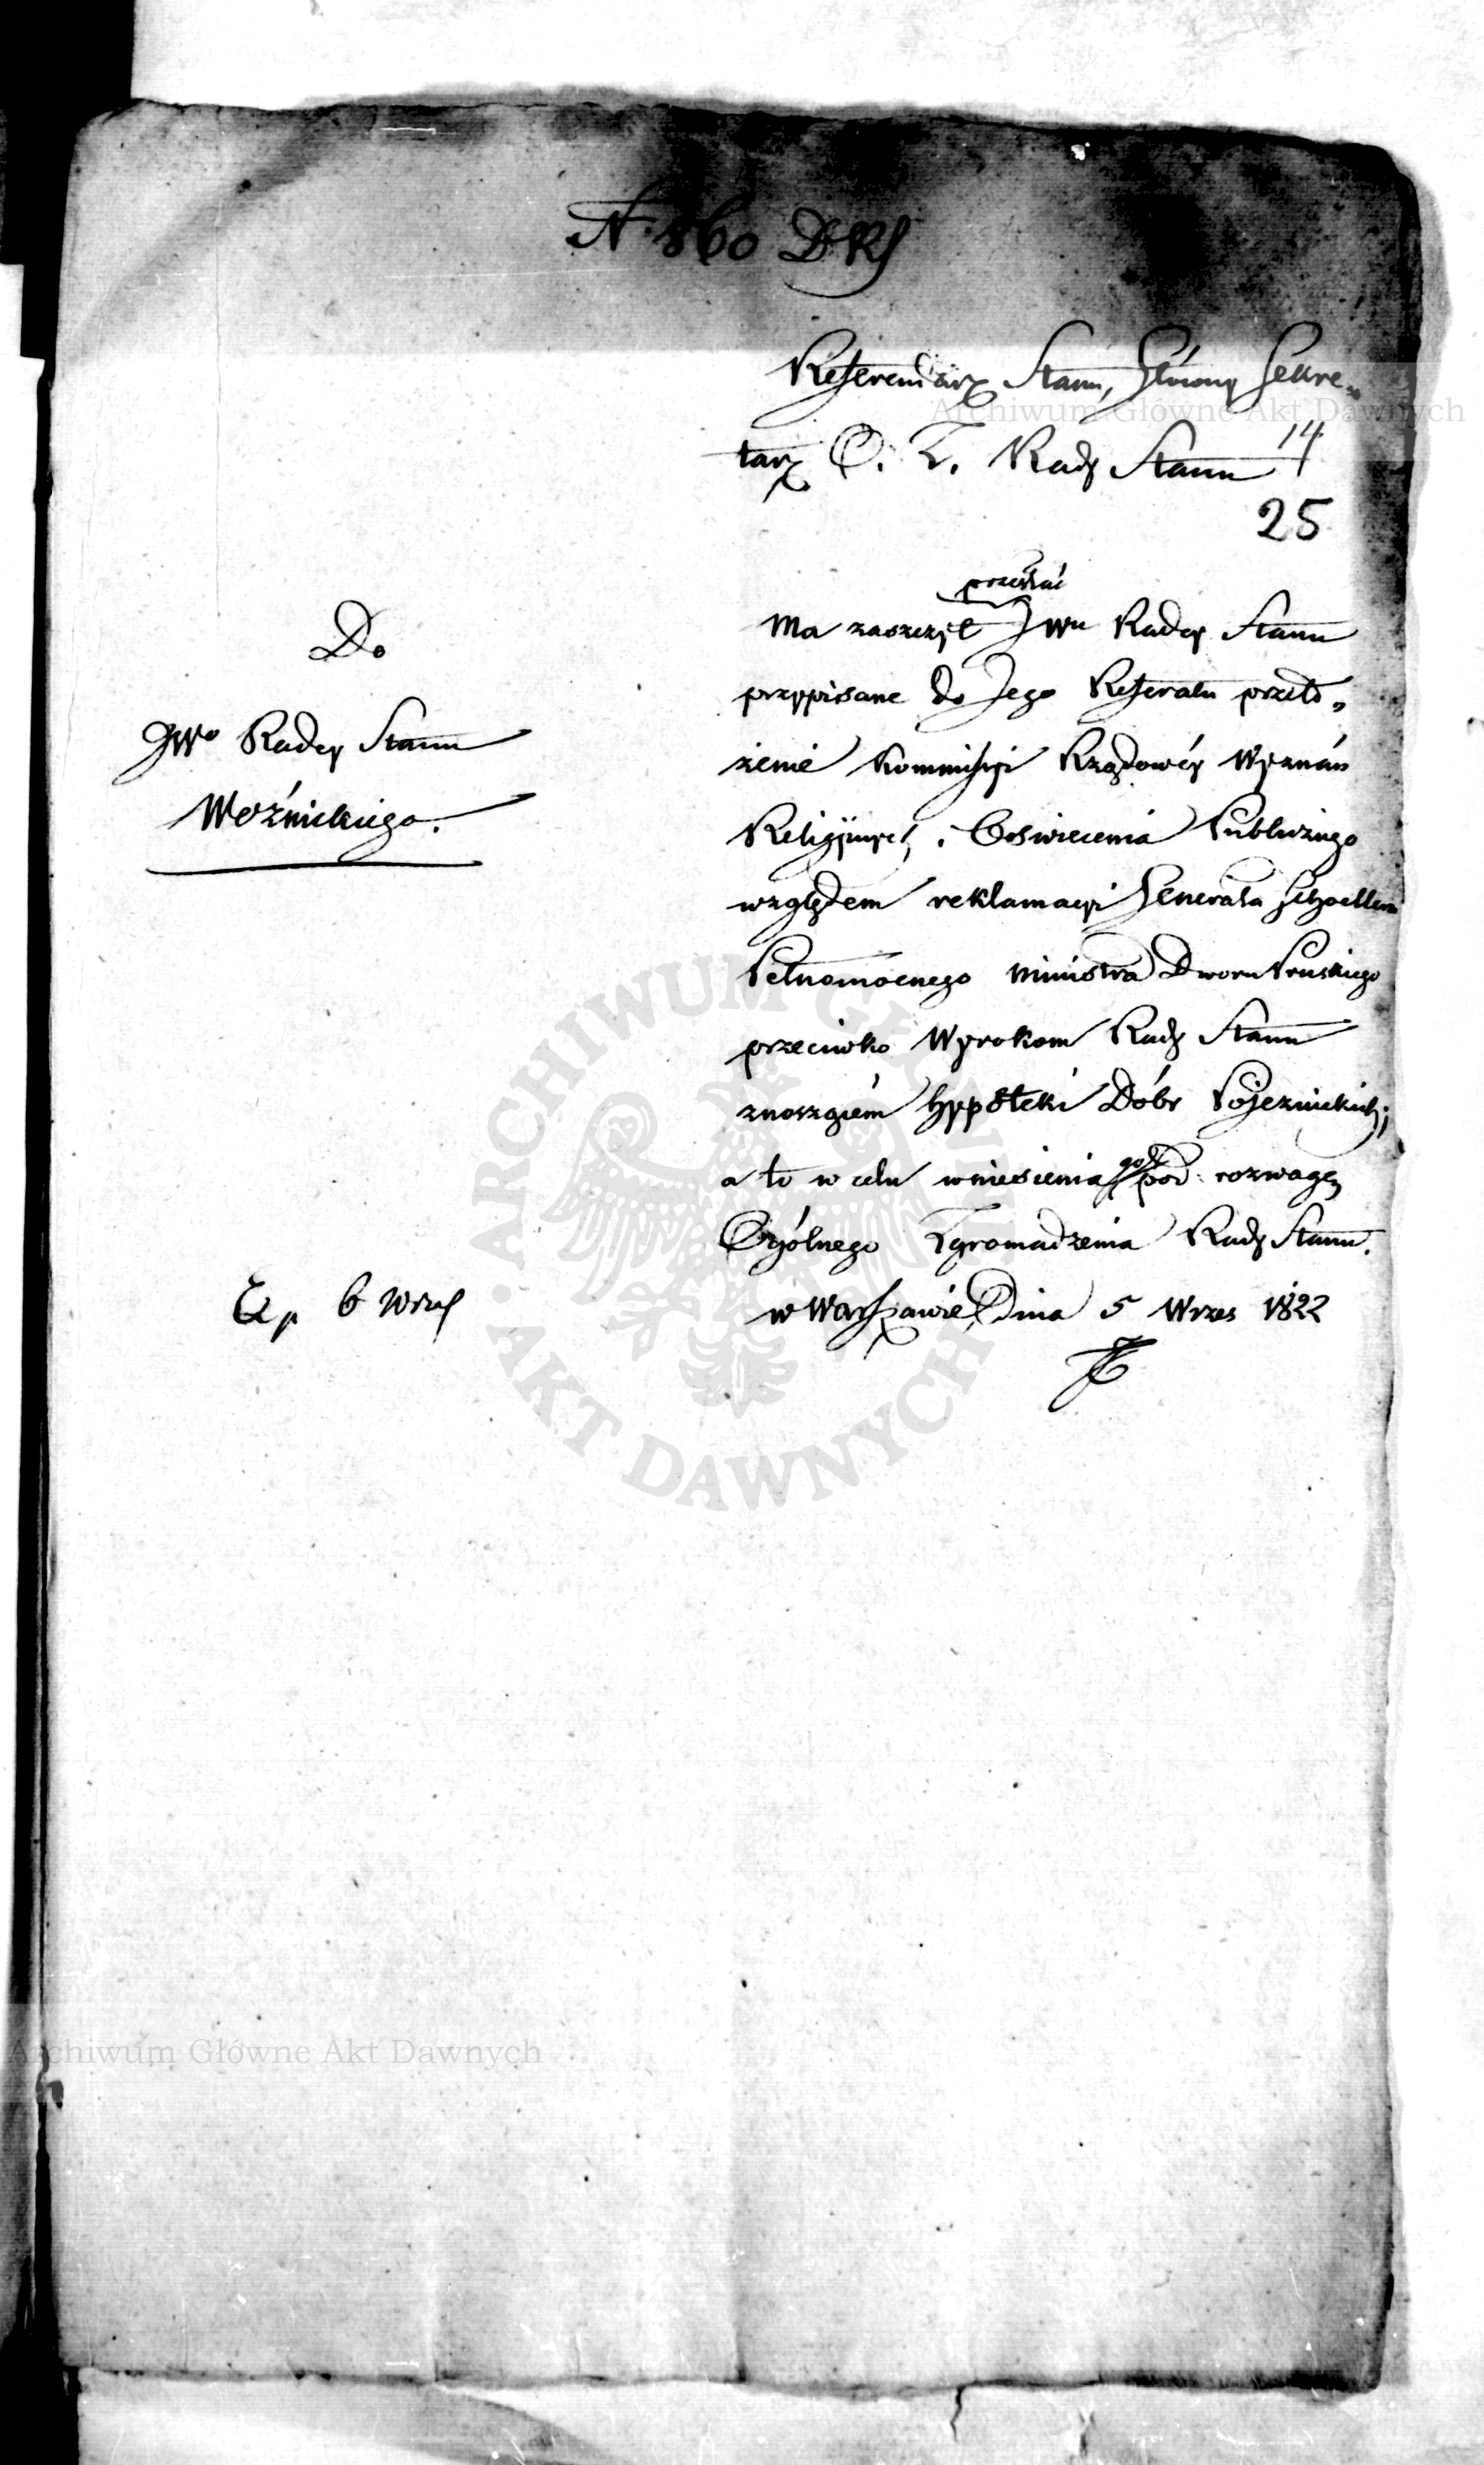 N. 860 DRS
Referendarz Stanu, Główny Sekre„
tarz O. Z. Rady Stanu
14
25
Do
JWo Radcy Stanu
Woźnickiego.
przesłać
Ma zaszczyt JWu Radcy Stanu
przypisane do Jego Referatu przeło„
żenie Kommissyi Rządowéy Wyznań
Religijnych i Oświecenia Publicznego
względem reklamacyi Generała Schoellera
Pełnomocnego Ministra Dworu Pruskiego
przeciwko Wyrokom Rady Stanu
znoszącém hypoteki Dóbr Pojezuickich;
a to w celu wniesienia go pod rozwagę
Ogólnego Zgromadzenia Rady Stanu.
w Warszawie Dnia 5 Wrześ 1822
6 Wrześ
Archiwum Główne Akt Dawnych
ARCHIWUM GŁÓWNE AKT DAWNYCH
Archiwum Główne Akt Dawnych